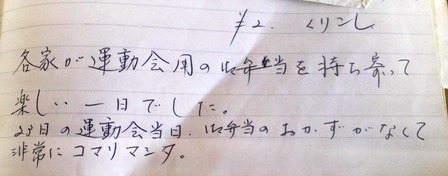 #2. くりこし
各家が運動会用のお弁当を持ち寄って
楽しい一日でした。
23日の運動会当日、お弁当のおかずがなくて
非常にコマリマシタ。